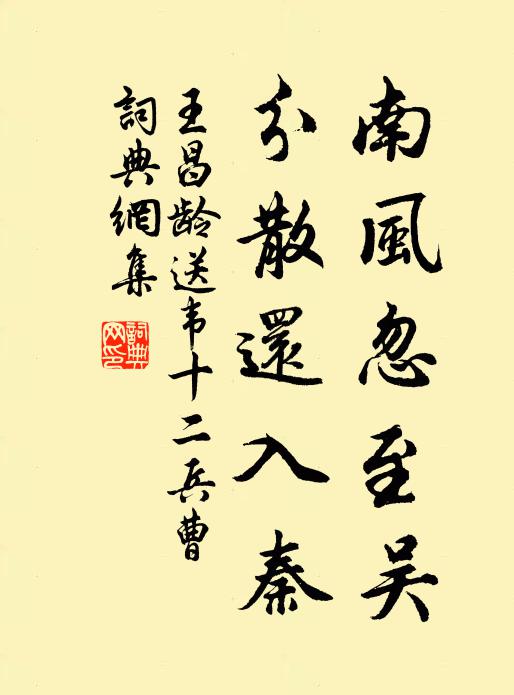 南風忽至吴
分散還入秦
王昌龄送韦十二兵曹
詞典網集
詞典网印